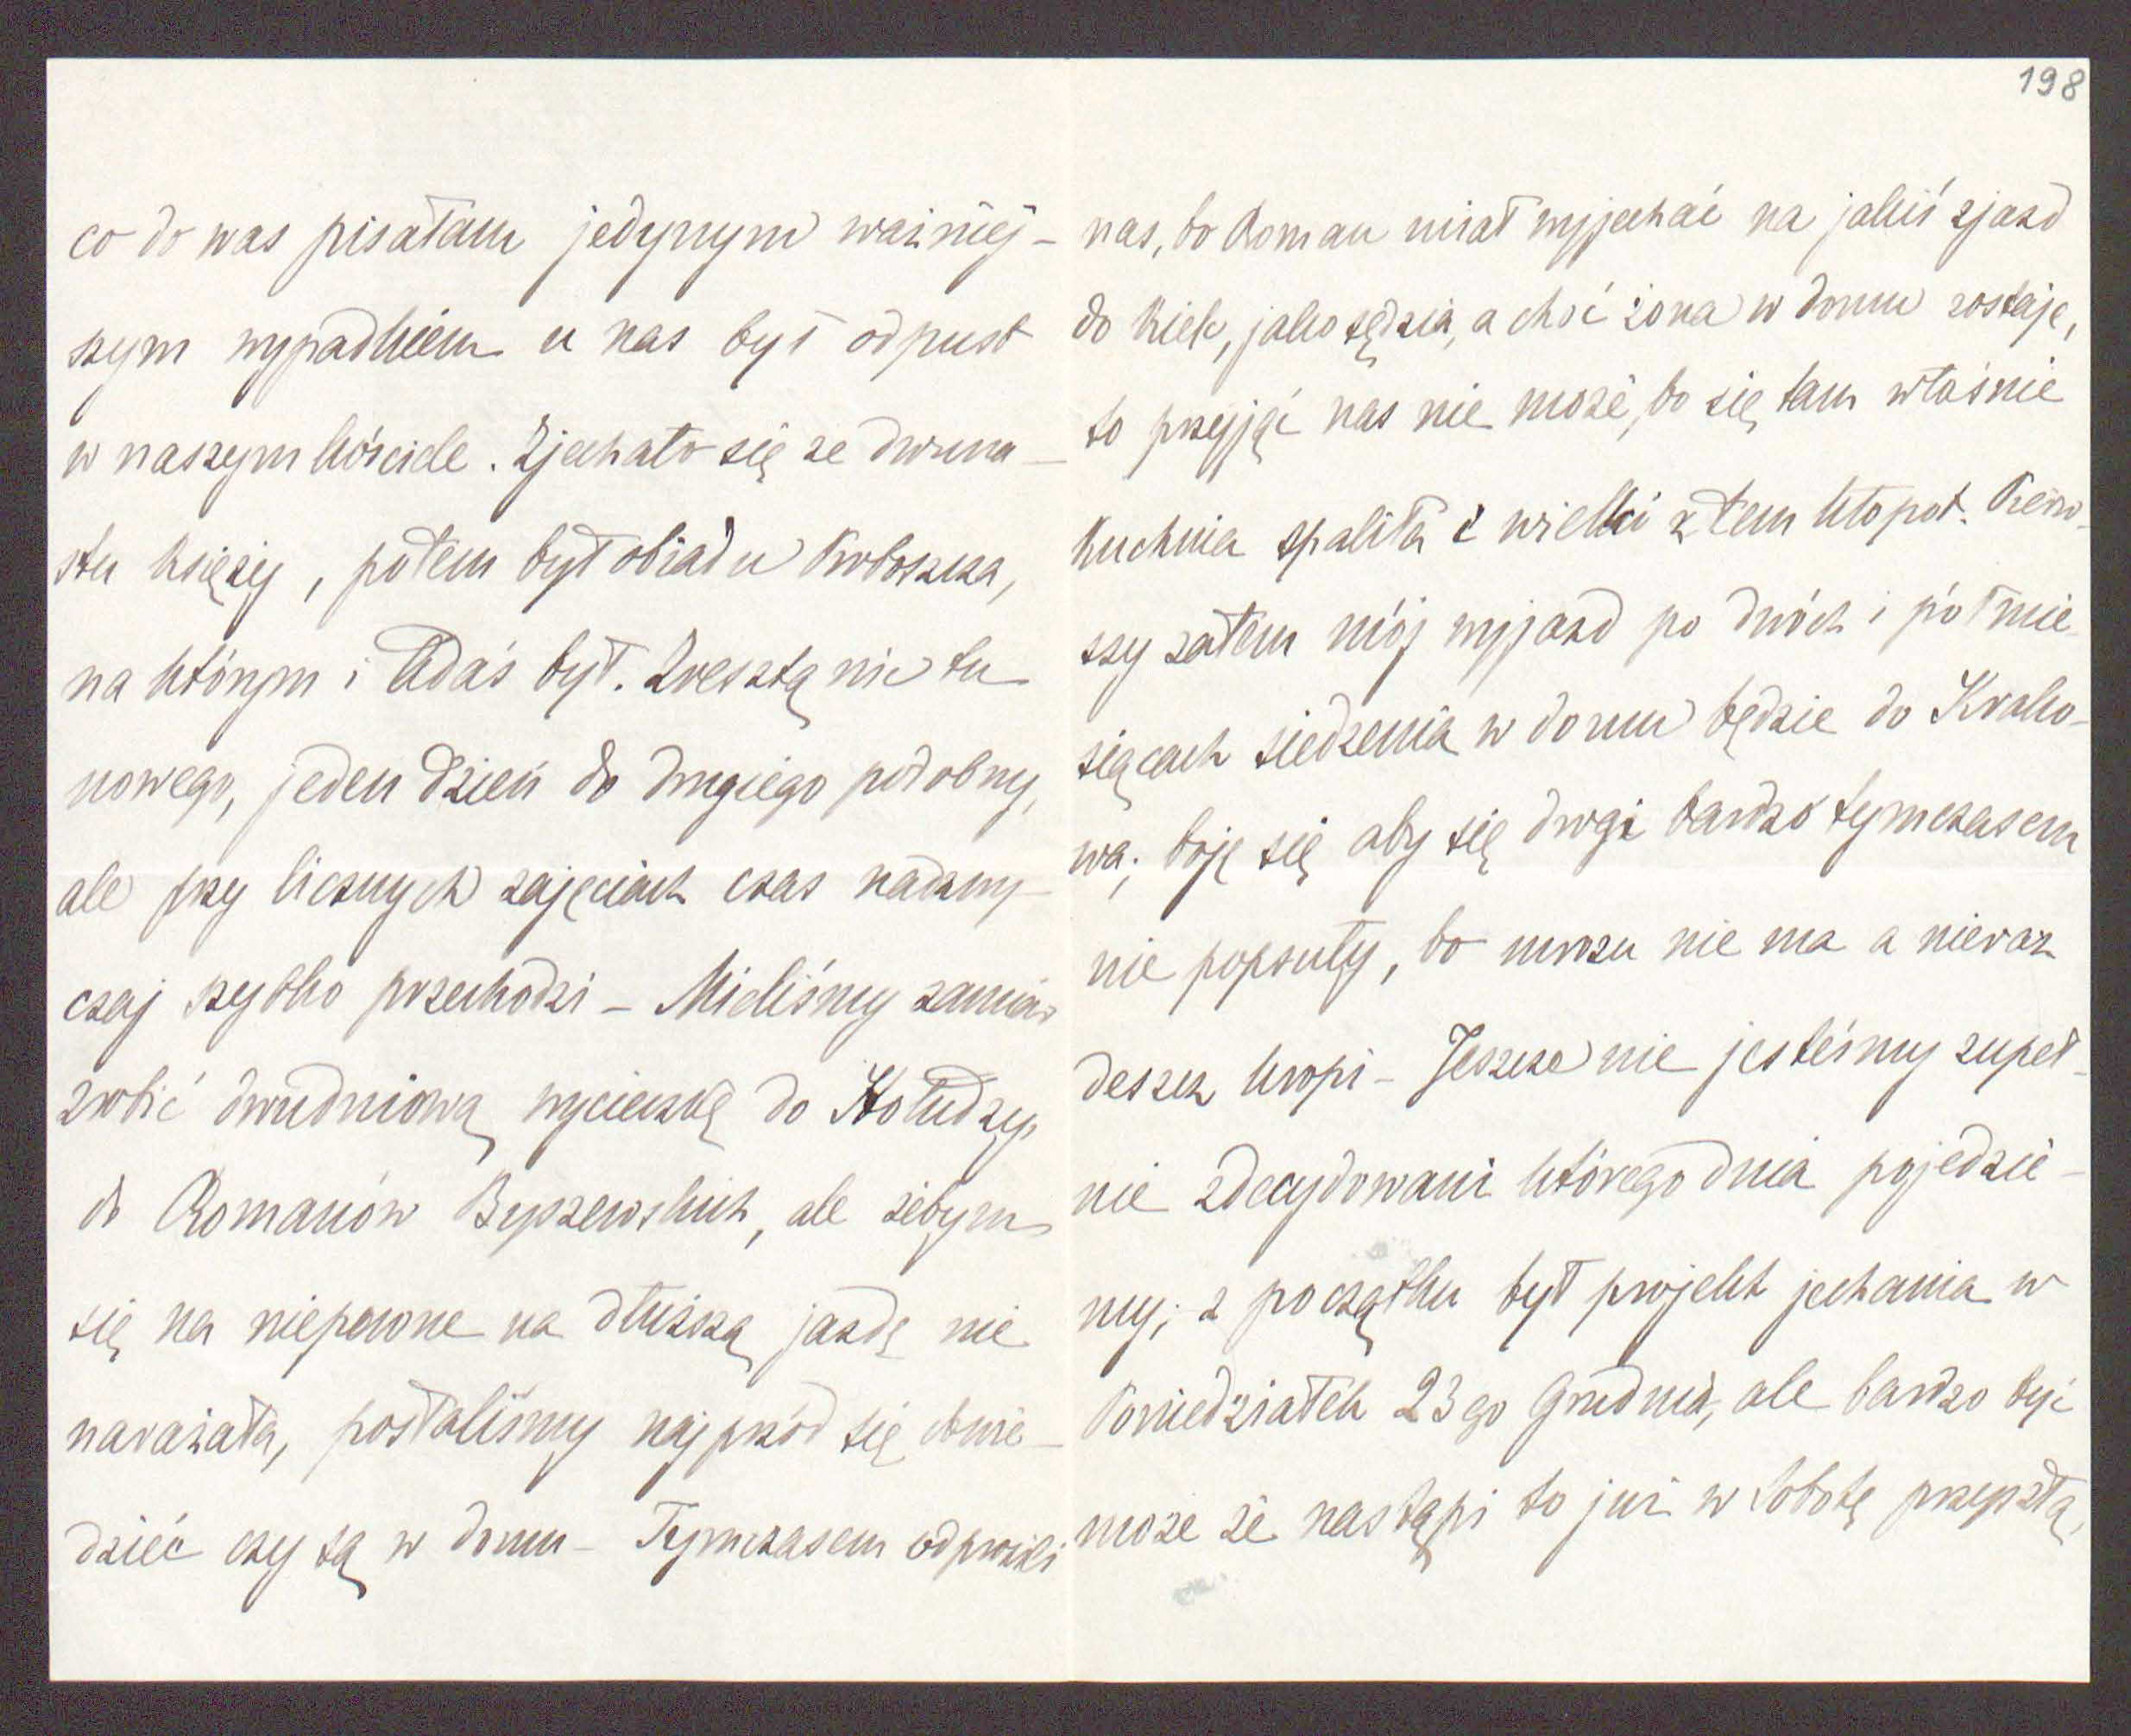 198
co do was pisałam jedynym ważniej-
szym wypadkiem u nas był odpust
w naszym kościele. Zjechało się ze dwuna-
stu księży, potem był obiad u Proboszcza,
na którym i Adaś był. Zresztą nic tu
nowego, jeden dzień do drugiego podobny,
ale przy licznych zajęciach czas nadzwy-
czaj szybko przechodzi - Mieliśmy zamiar
zrobić dwudniową wycieczkę do Hołudzy,
do Romanów Byszewskich, ale żebym
się na niepewne na dłuższą jazdę nie
narażała, posłaliśmy najprzód się dowie-
dzieć czy są w domu - Tymczasem odprosili
nas, bo Roman miał wyjechać na jakiś zjazd
do Kielc, jako sędzia, a choć żona w domu zostaje,
to przyjąć nas nie może, bo się tam właśnie
kuchnia spaliła i wielki z tem kłopot. Pierw-
szy zatem mój wyjazd po dwóch i pół mie-
siącach siedzenia w domu będzie do Krako-
wa; boję się aby się drogi bardzo tymczasem
nie popsuły, bo mrozu nie ma a nieraz
deszcz kropi - Jeszcze nie jesteśmy zupeł-
nie zdecydowani którego dnia pojedzie-
my; z początku był projekt jechania w
Poniedziałek 23go Grudnia, ale bardzo być
może że nastąpi to już w Sobotę przyszłą,